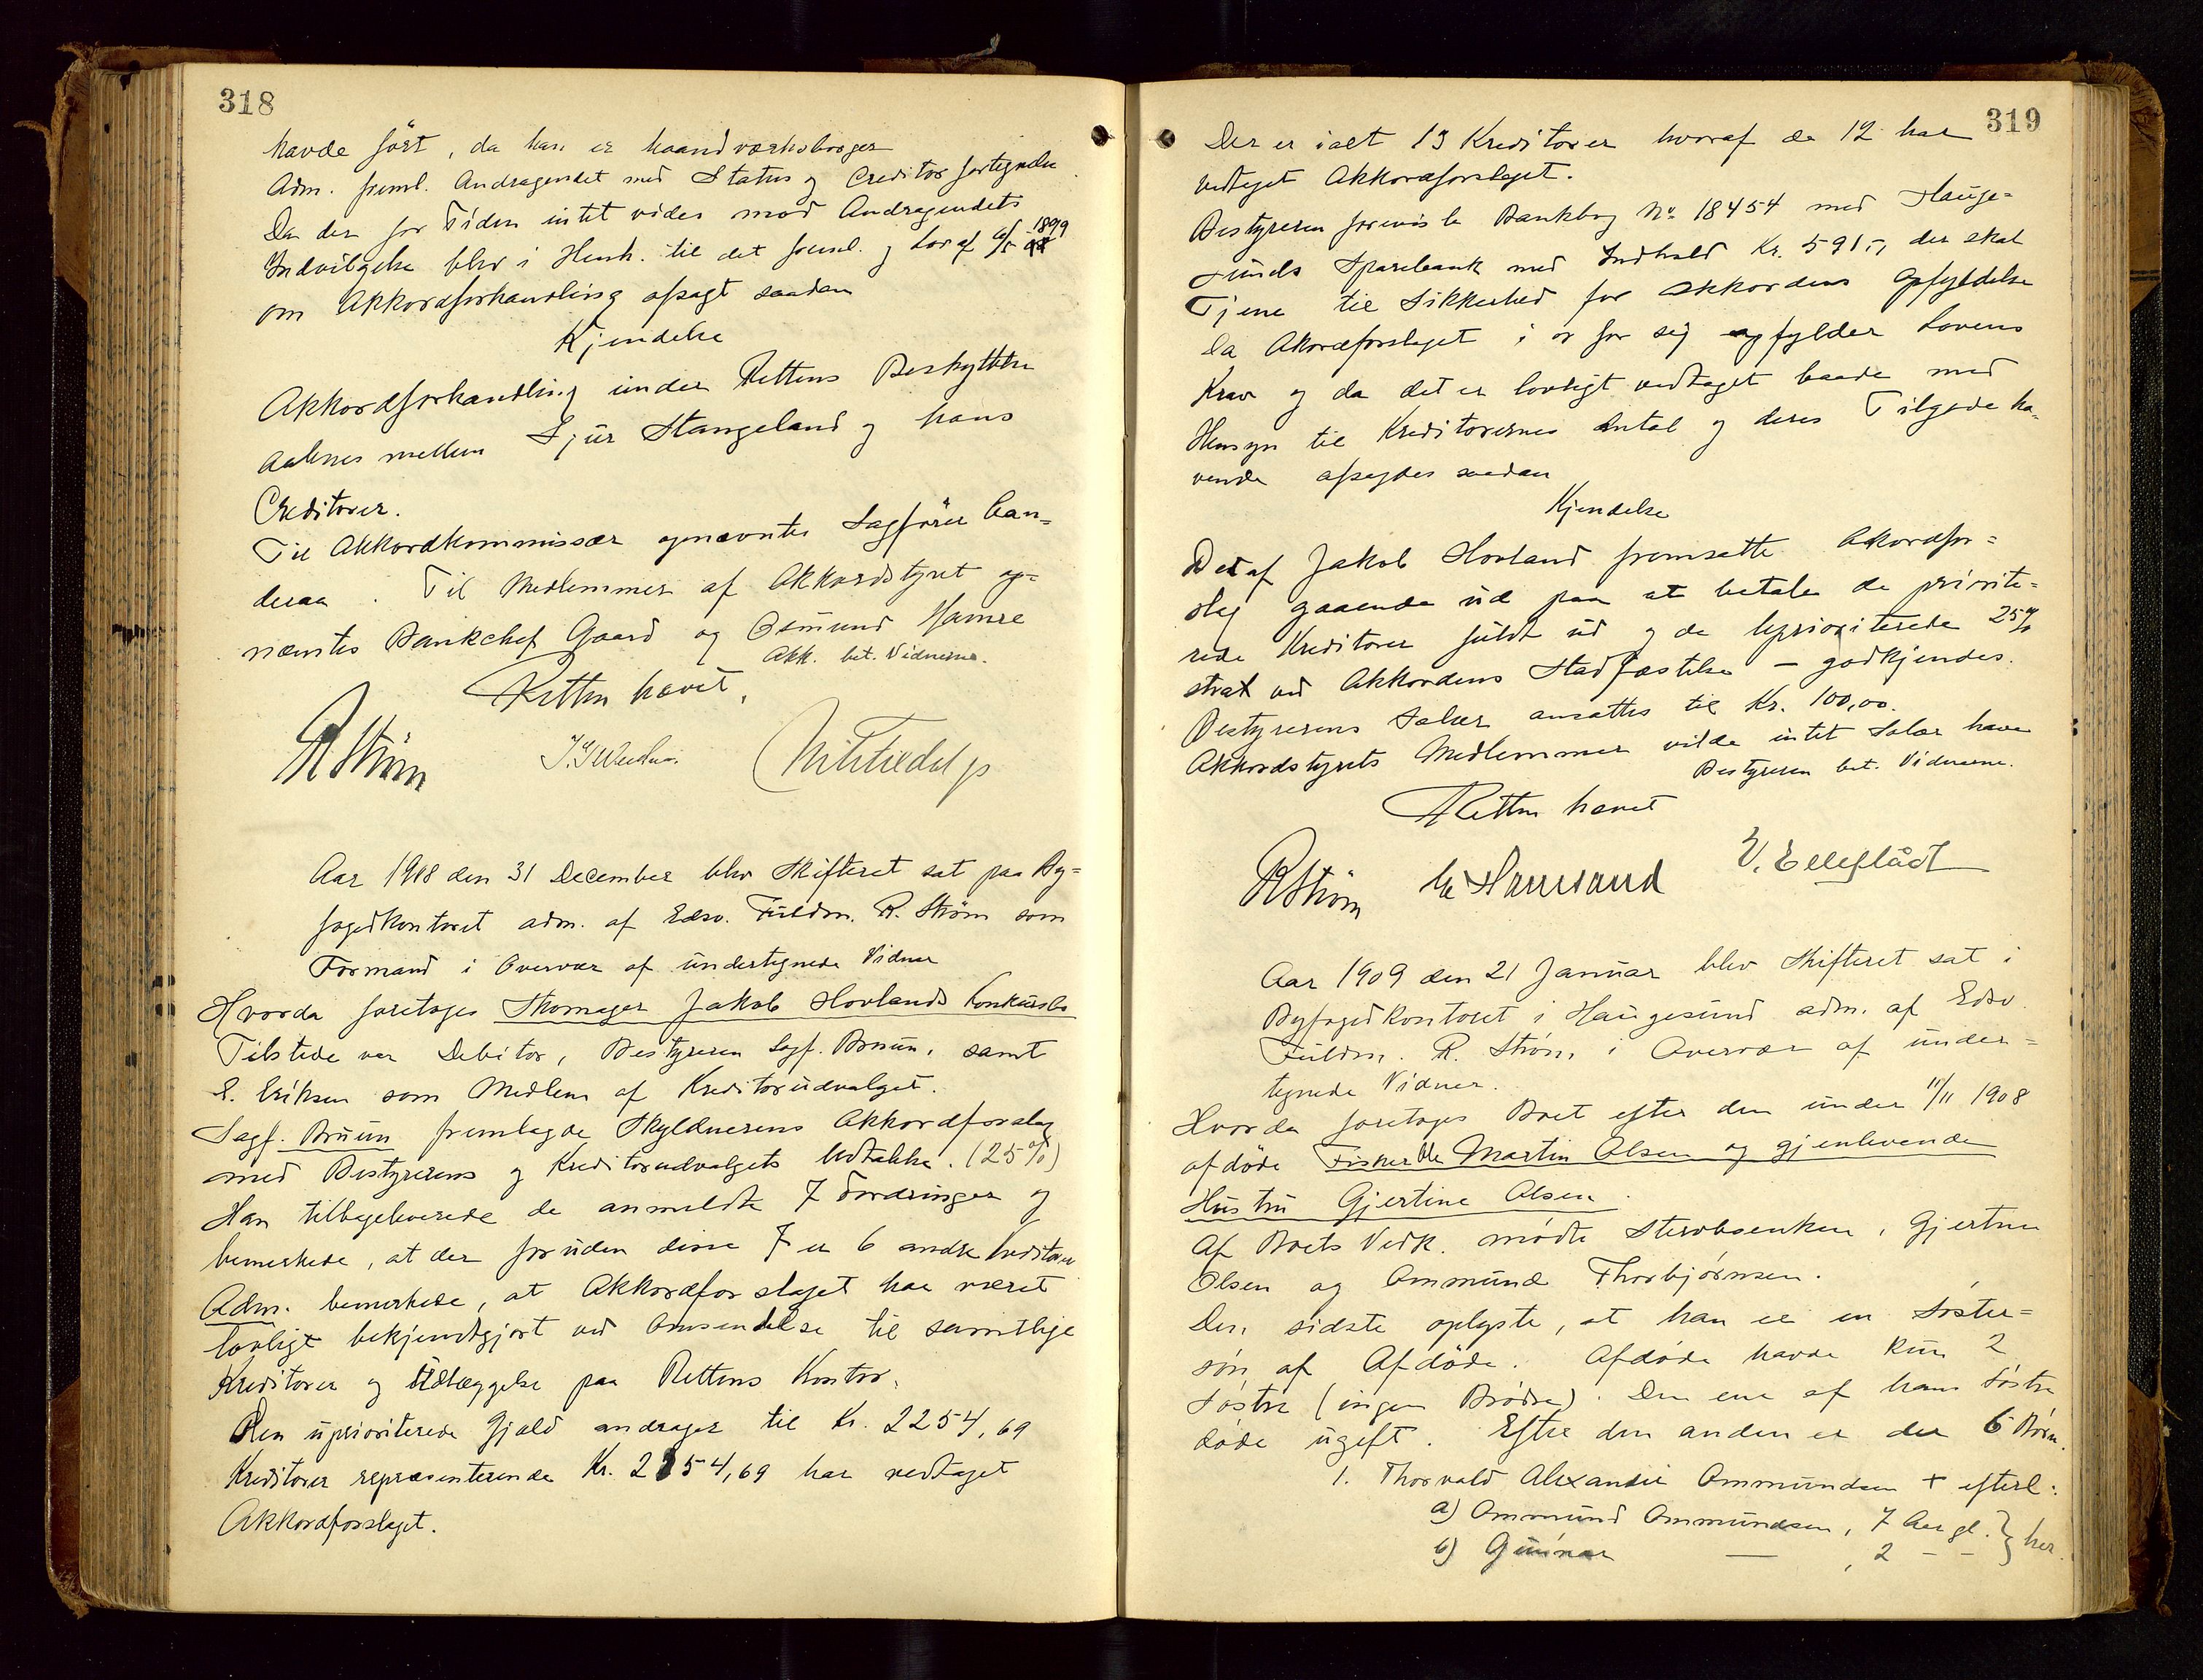 318
havde ført, da han er haandværksborger
Adm. freml. Andragendet med Status og Creditorfortegnelse
Da der for Tiden intet vides mod Andragendets
Indvilgelse blev i Henh. til det freml. og Lov af 6/5 1899
om Akkordforhandling afsagt saadan
Kjendelse
Akkordforhandling under Rettens Beskyttelse
aabnes mellem Sjur Stangeland og hans
Creditorer.
Til Akkordkommissær opnævntes Sagfører Can-
deraa. Til Medlemmer af Akkordstyret op-
nævntes Bankchef Gaard og Osmund Hamre
Akk. bet. Vidnerne.
Retten hævet.
R Strøm
Aar 1908 den 31 December blev Skifteret sat paa By-
fogedkontoret adm. af Edsv. Fuldm. R. Strøm som
Formand i Overvær af undertegnede Vidner
Hvorda foretoges Skomager Jakob Hovlands Konkursbo
Tilstede var Debitor, Bestyreren Sagf. Bruun, samt
E. Eriksen som Medlem af Kreditorudvalget.
Sagf. Bruun fremlagde Skyldnerens Akkordforslag
med Bestyrerens og Kreditorudvalgets Udtalelse. (25%)
Han tilbageleverede de anmeldte 7 Fordringer og
bemerkede, at der foruden disse 7 er 6 andre Creditorer
Adm. bemerkede, at Akkordforslaget har været
lovligt bekjendtgjort ved Omsendelse til samtlige
Kreditorer og Udlæggelse paa Rettens Kontor.
Den uprioriterede Gjæld andrager til Kr. 2254,69
Kreditorer repræsenterende Kr. 2154,69 har vedtaget
Akkordforslaget.
319
Der er ialt 13 Kreditorer hvoraf de 12 har
vedtaget Akkordforslaget.
Bestyreren foreviste Bankbog No 18454 med Hauge-
sunds Sparebank med Indhold Kr. 591,-, der skal
Tjene til Sikkerhed for Akkordens Opfyldelse
Da Akordforslaget i og for sig opfylder Lovens
Krav og da det er lovligt vedtaget baade med
Hensyn til Kreditorernes Antal og deres Tilgodeha-
vende afsagdes saadan
Kjendelse
Det af Jakob Hovland fremsatte Akordfor-
slag gaaende ud paa at betale de priorite-
rede Kreditorer fuldt ud og de uprioriterede 25%
strax ved Akkordens Stadfæstelse – godkjendes.
Bestyrerens Salær ansattes til Kr. 100,00.
Akkordstyrets Medlemmer vilde intet Salær have
Bestyreren bet. Vidnerne.
Retten hævet
R Strøm
V. Elleflådt
Aar 1909 den 21 Januar blev Skifteret sat i
Byfogedkontoret i Haugesund adm. af Edsv.
Fuldm. R. Strøm i Overvær af under-
tegnede Vidner.
Hvorda foretoges Boet efter den under 11/11 1908
afdøde Fisker Ole Martin Olsen og gjenlevende
Hustru Gjertine Olsen.
Af Boets Vedk. mødte Stervbsenken, Gjertine
Olsen og Ommund Thorbjørnsen.
Den sidste oplyste, at han er en Søster-
søn af Afdøde. Afdøde havde kun 2
Søstre (ingen Brødre). Den ene af hans Søstre
døde ugift. Efter den anden er der 6 Børn.
1. Thorvald Alexander Ommundsen + efterl.
a) Ommund Ommundsen, 7 Aar gl. } her.
b) Gunnar — , 2 – –